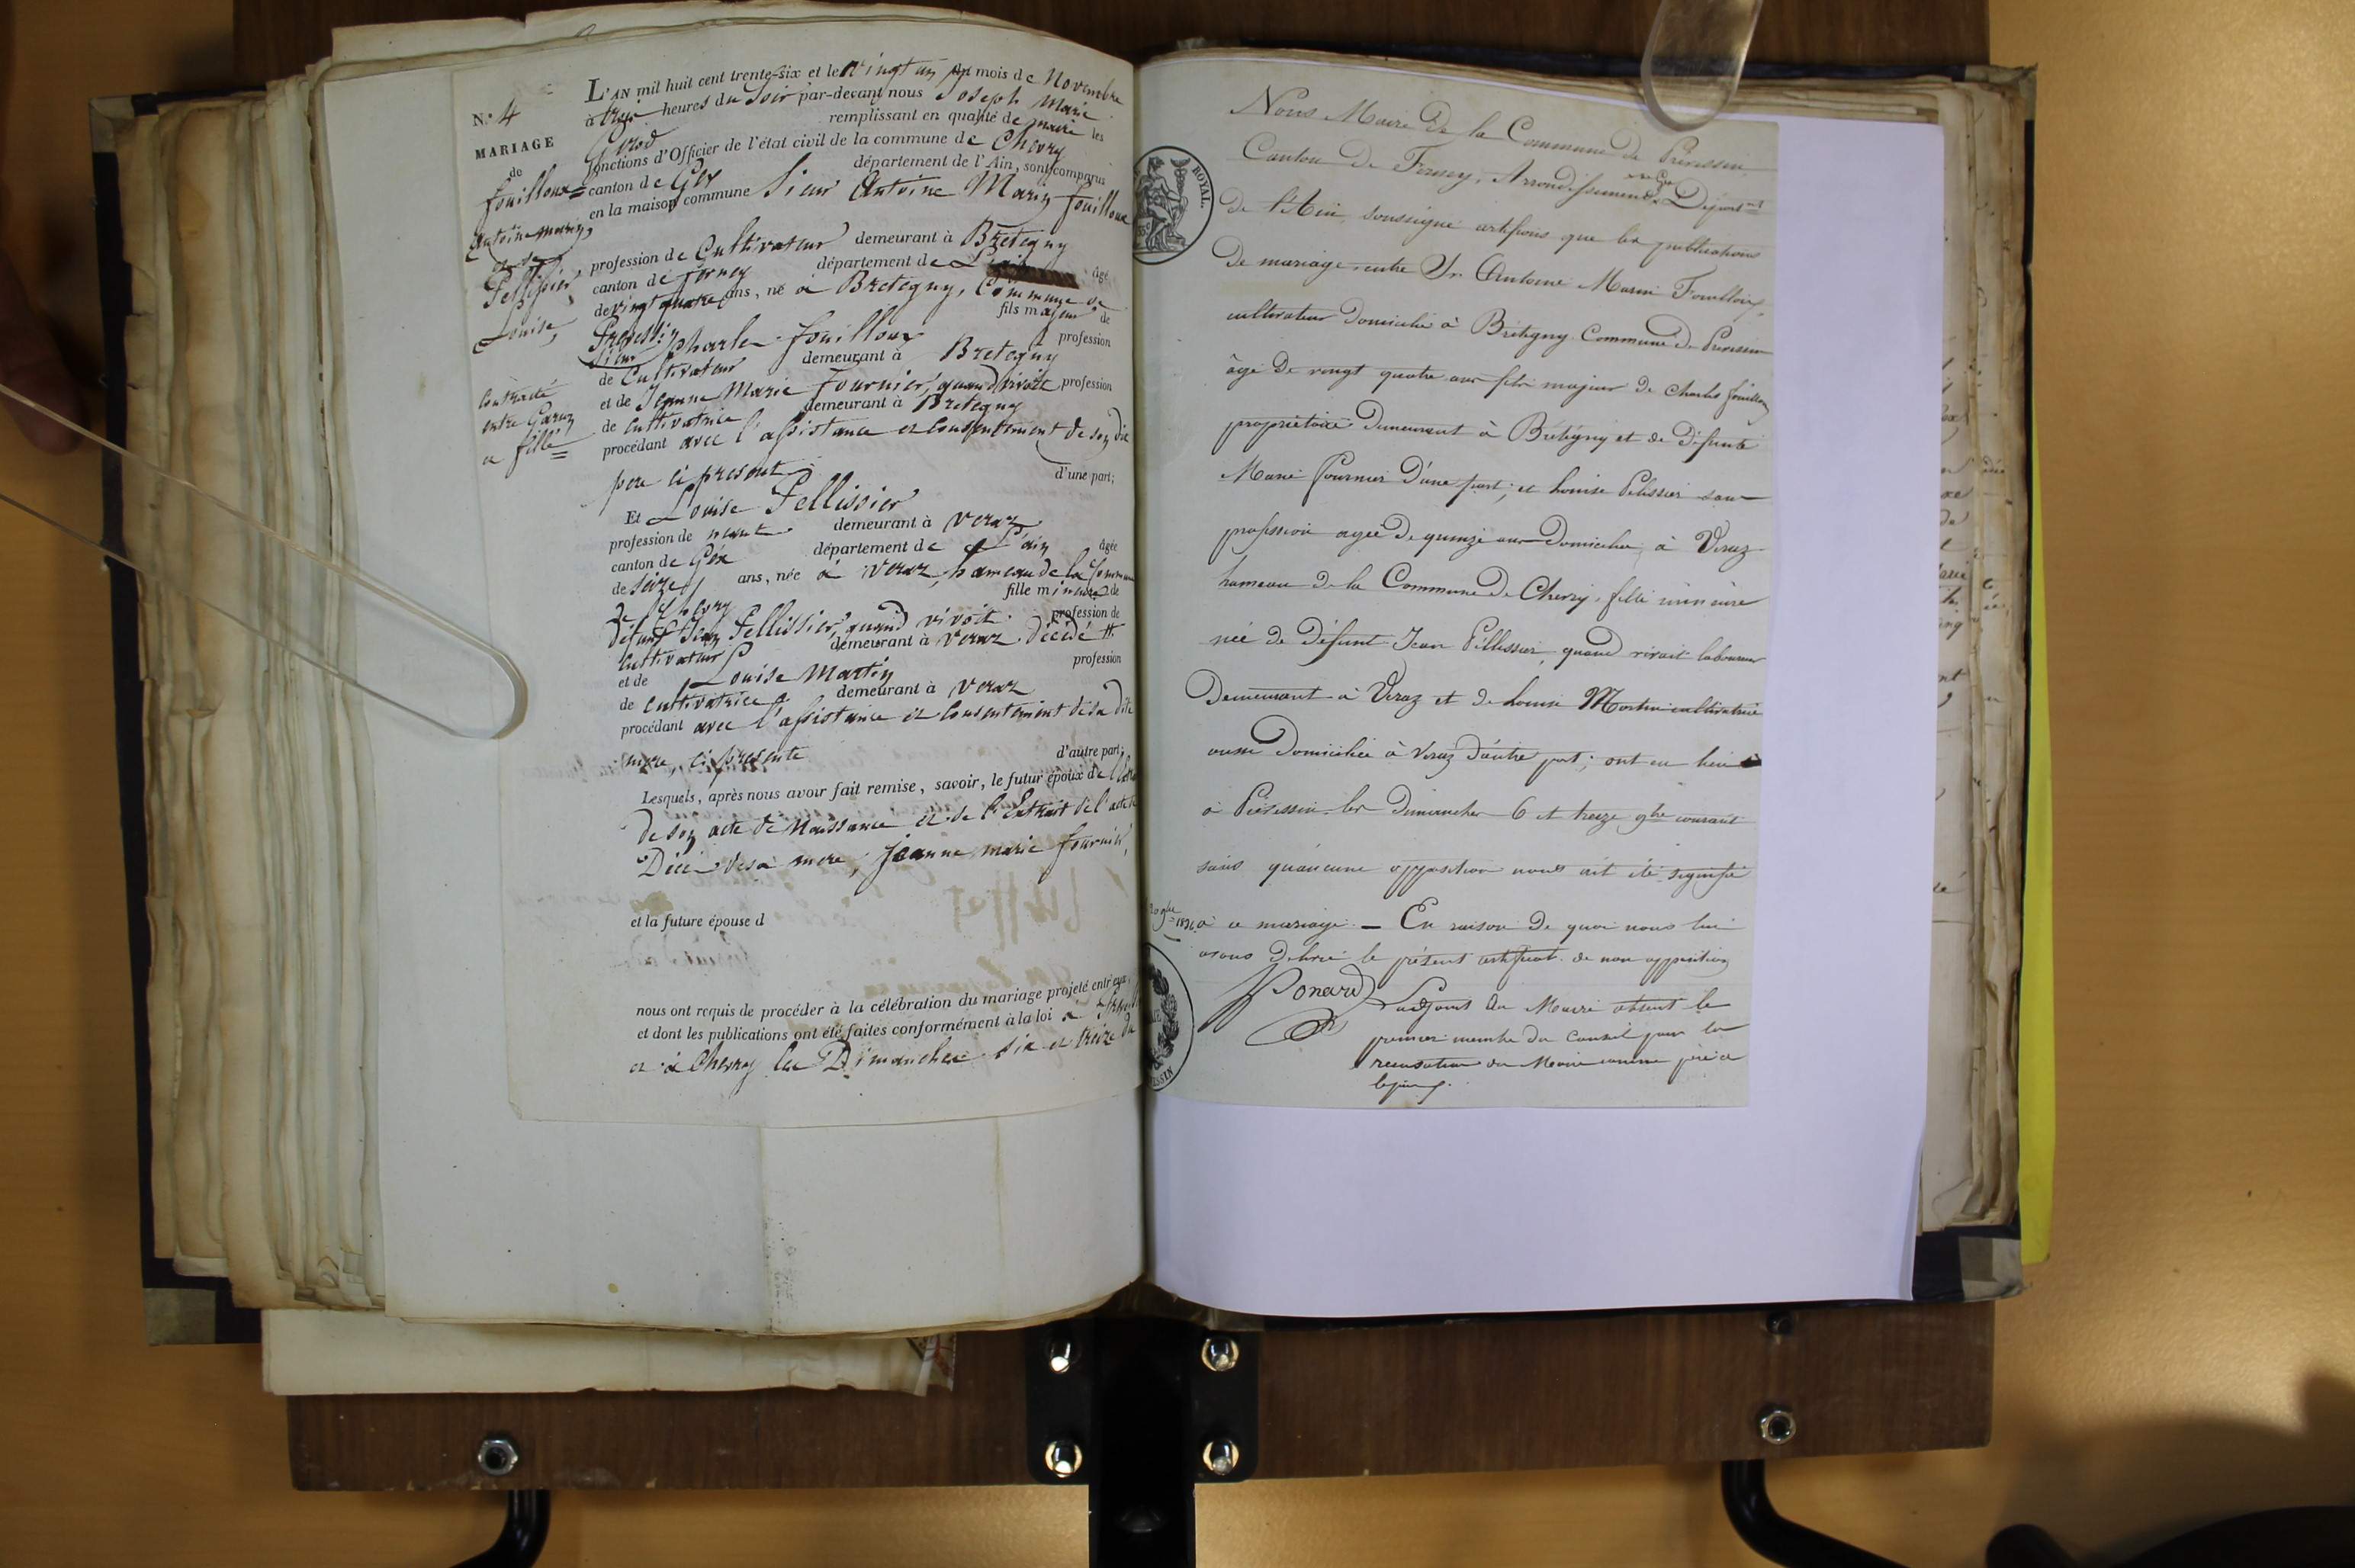 N.° 4
MARIAGE
de
fouilloux =
Antoine marin,
et de
Pellissier
Louise,
Contracté
entre Garçon
et fille =
L'AN mil huit cent trente-six et le vingt un du mois de Novembre
à trois heures du Soir par-devant nous Joseph Marie
Grod remplissant en qualité de maire les
fonctions d'Officier de l'état civil de la commune de Chevry
canton de Gex département de l'Ain, sont comparus
en la maison commune Sieur Antoine Marin fouilloux
profession de Cultivateur demeurant à Bretegny
canton de ferney département de L'ain âgé
de vingt quatre ans, né à Bretegny, Commune de
Prevessin fils majeur de
Sieur Charles fouilloux profession
de Cultivateur demeurant à Bretegny
et de Jeanne Marie fournier, quand vivoit, profession
de Cultivatrice demeurant à Bretegny
procédant avec l'assistance et Consentement de son dit
pere ci present d'une part;
Et Louise Pellissier
profession de neant demeurant à Veraz
canton de Gex département de L'ain âgée
de seize ans, née à Veraz, hameau de la Commune
de Chevry fille mineure de
défunt Jean Pellissier, quand vivoit profession de
Cultivateur demeurant à Veraz décédé #
et de Louise Martin profession
de Cultivatrice demeurant à Veraz
procédant avec l'assistance et Consentement de sa dite
mere, ci presente d'autre part;
Lesquels, après nous avoir fait remise, savoir, le futur époux de
de son acte de Naissance et de l'Extrait de l'acte de
Décès de sa mere, Jeanne marie fournier,
et la future épouse d
nous ont requis de procéder à la célébration du mariage projeté entr'eux,
et dont les publications ont été faites conformément à la loi à
et à Chevry les Dimanches six et treize du
ROYAL.
Nous Maire de la Commune de Prévessin
Canton de Ferney, Arrondissement de Gex Départ.nt
de l'Ain, soussigné certifions que les publications
de mariage, entre Sr. Antoine Marin Fouilloux,
cultivateur domicilié à Brétigny Commune de Prevessin
âgé de vingt quatre ans fils majeur de Charles fouilloux
propriétaire demeurant à Brétigny et de défunte
Marie fournier d'une part; et Louise Pelissier sans
profession agée de quinze ans domiciliée à Veraz
hameau de la Commune de Chevry, fille mineure
née de défunt Jean Péllissier, quand vivait laboureur
demeurant à Veraz et de Louise Martin cultivatrice
aussi domiciliée à Veraz d'autre part; ont eu lieu
à Prévessin les dimanches 6 et treize 9bre courant
sans qu'aucune opposition nous ait été signifié
à ce mariage. — En raison de quoi nous lui
avons délivré le présent certificat de non opposition
20 9bre 1836
Ponard
L'adjoint du Maire absent le
premier membre du Conseil pour la
recusation du Maire comme père de
l'époux.